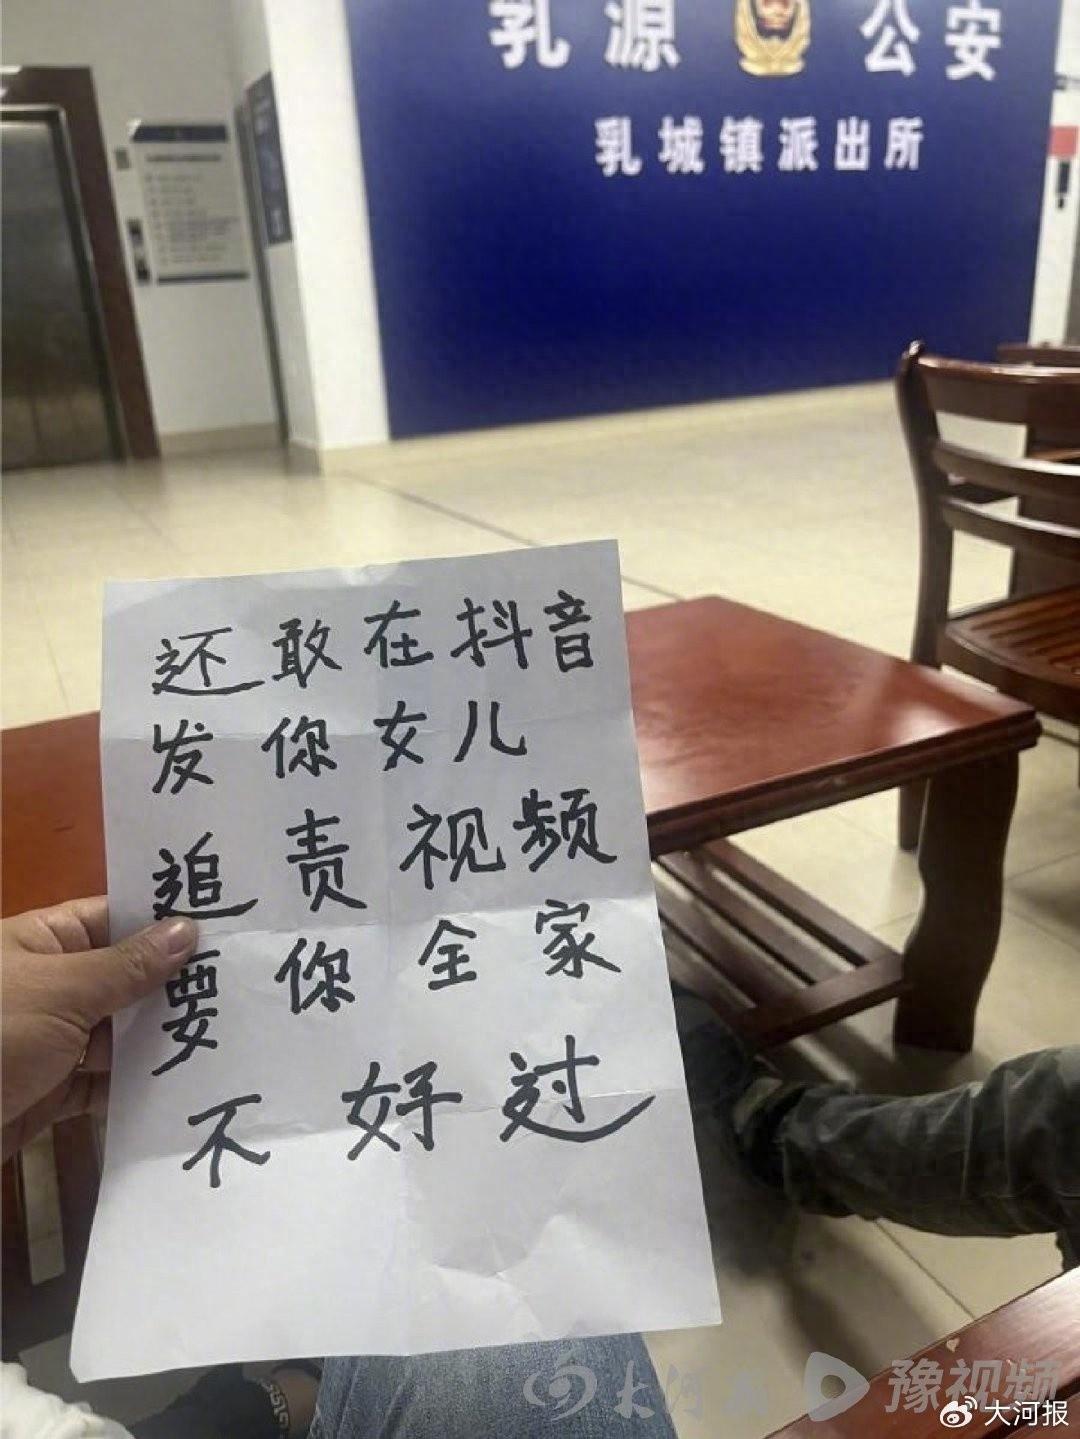 乳源 公安
乳城镇派出所
还敢在抖音
发你女儿
追责视频
要你全家
不好过
大河报 豫视频
大河报